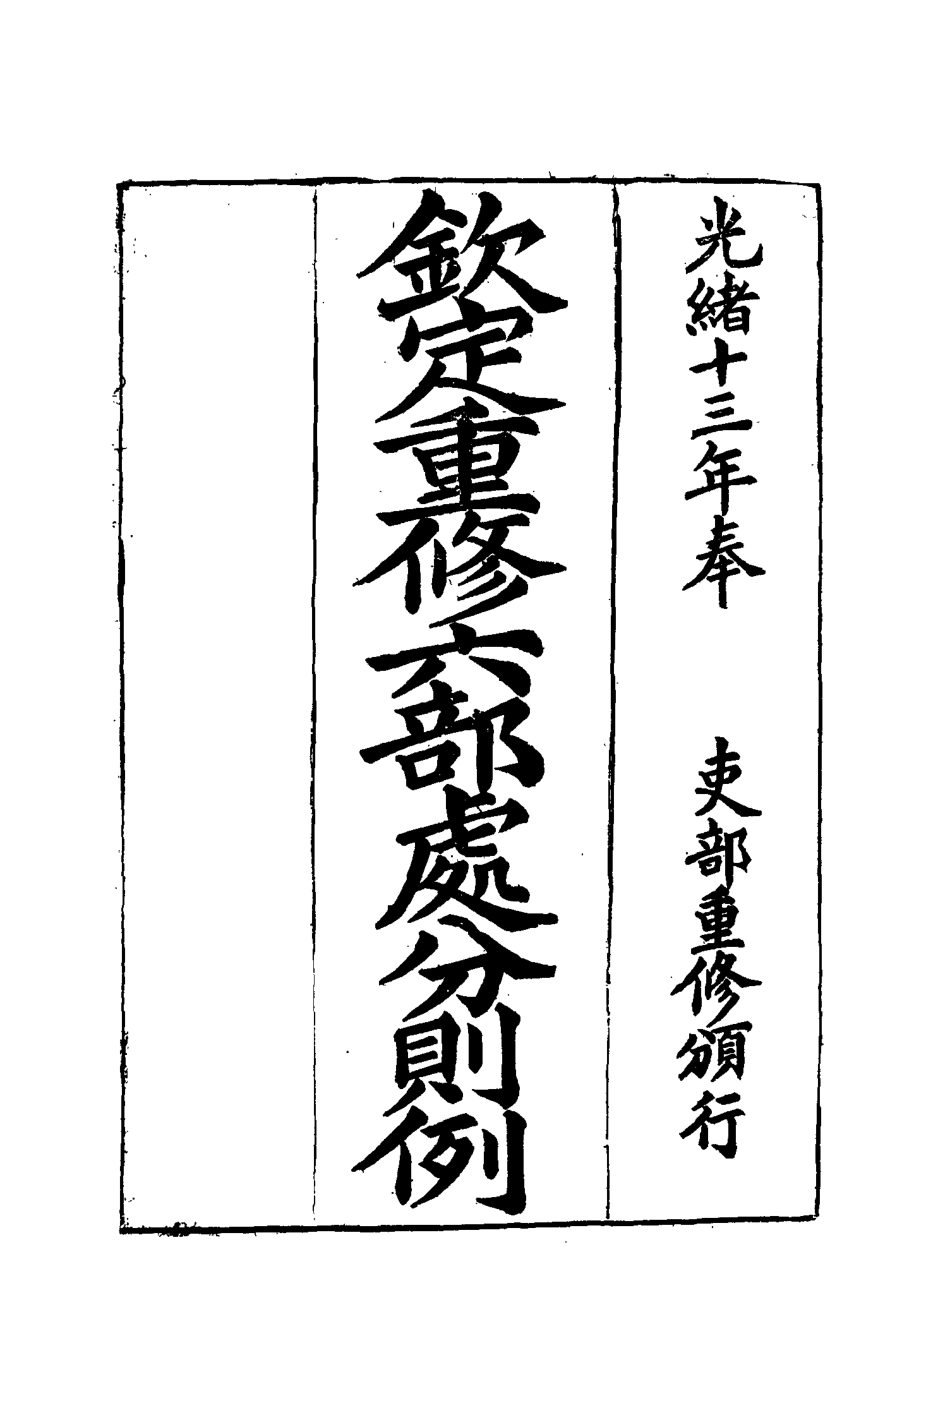 光緒十三年奉 吏部重修頒行
欽定重修六部處分則例